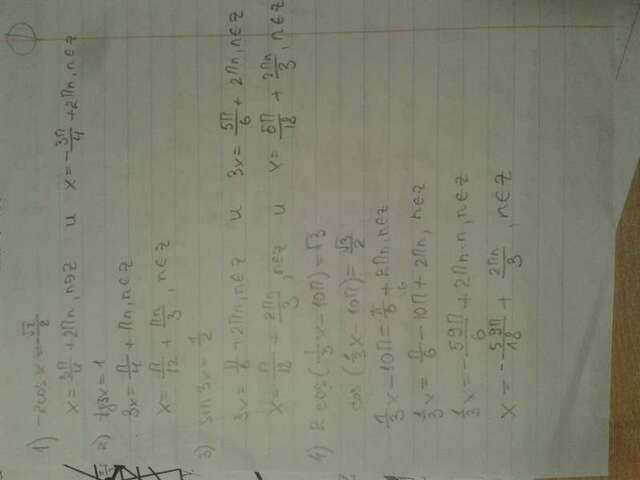 1) -2cosx = √2/2
x = 3π/4 + 2πn, n∋z и x = -3π/4 + 2πn, n∈z
2) tg3x = 1
3x = π/4 + πn, n∈z
x = π/12 + πn/3, n∈z
3) sin3x = 1/2
3x = π/6 + 2πn, n∈z и 3x = 5π/6 + 2πn, n∈z
x = π/18 + 2πn/3, n∈z и x = 5π/18 + 2πn/3, n∈z
4) 2cos(1/3x - 10π) = √3
cos(1/3x - 10π) = √3/2
1/3x - 10π = π/6 + 2πn, n∈z
1/3x = π/6 - 10π + 2πn, n∈z
1/3x = -59π/6 + 2πn, n∈z
x = -59π/18 + 2πn/3, n∈z